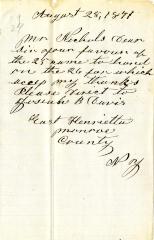 August 28, 1871
Mr Nichols Dear
Sir your favour of
the 25 came to hand
on the 26 for which
accep my thanks
Please direct to
Joseph B Davis
East Henrietta
Monroe
County
N Y